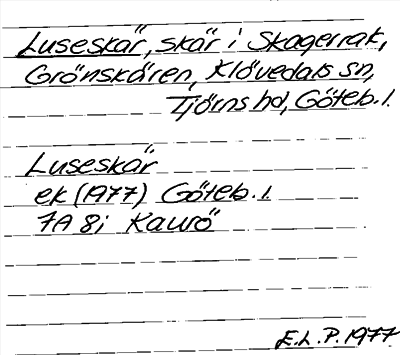 Luseskär, skär i Skagerrak,
Grönskären, Klövedals sn,
Tjörns hd, Göteb. l.
Luseskär
ek (1977) Göteb. l.
7A 8i Kaurö
E.L.P. 1977